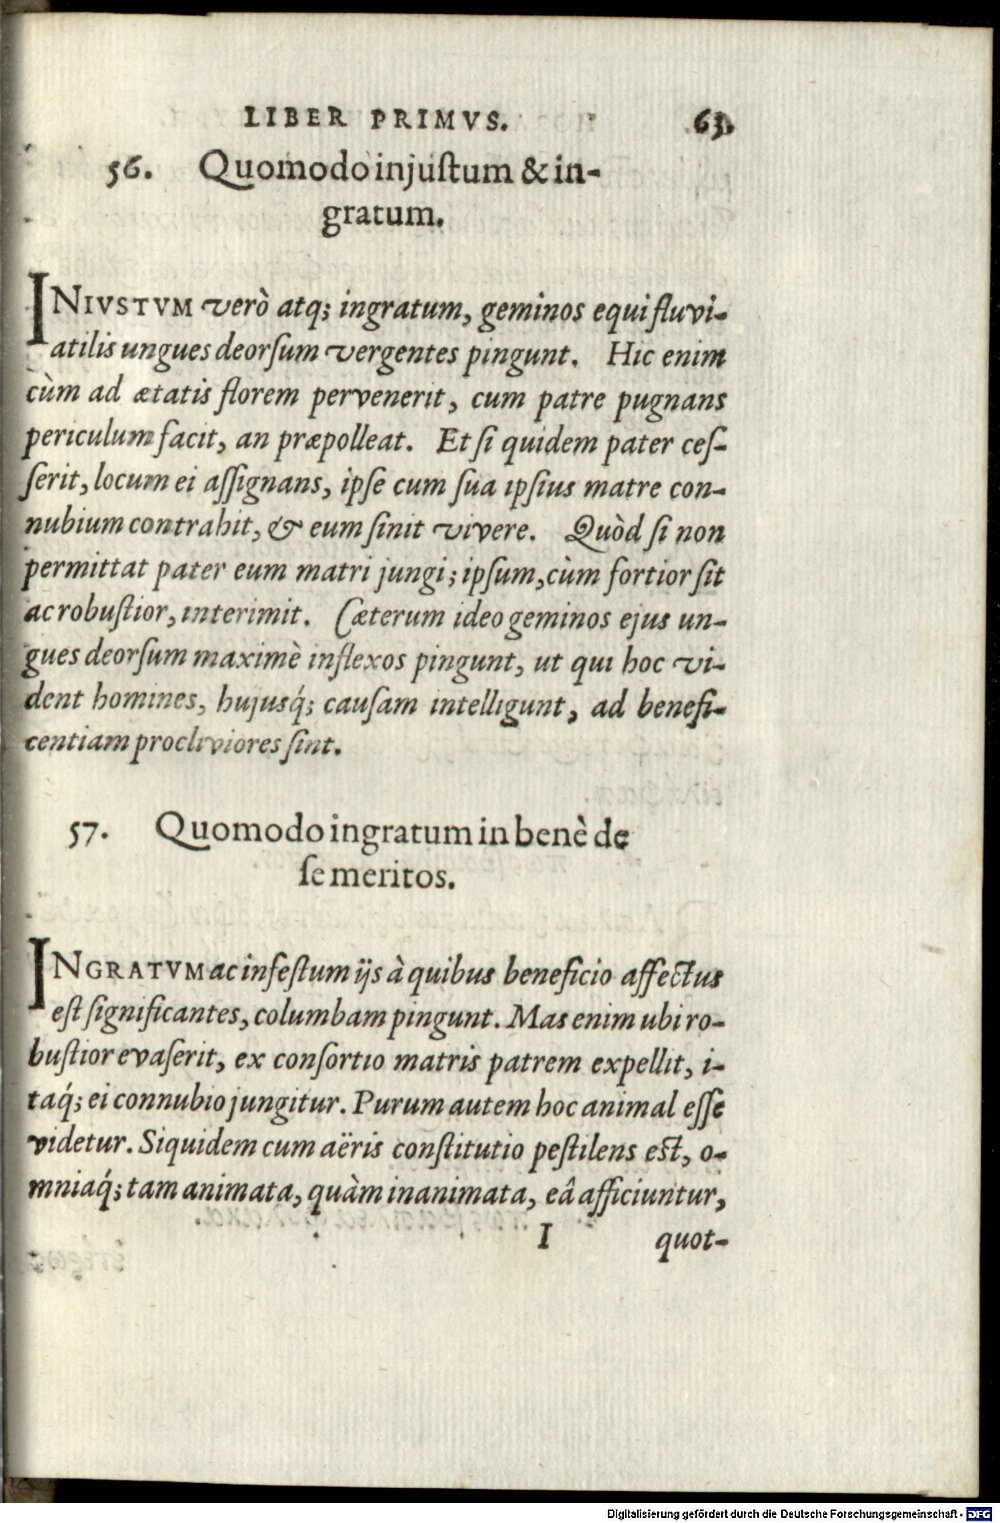 LIBER PRIMVS. 63.
56. Quomodo injuſtum & in-
gratum.
INIVSTVM verò atq; ingratum, geminos equi fluvi-
atilis ungues deorſum vergentes pingunt. Hic enim
cùm ad ætatis florem pervenerit, cum patre pugnans
periculum facit, an præpolleat. Et ſi quidem pater ceſ-
ſerit, locum ei aſſignans, ipſe cum ſua ipſius matre con-
nubium contrahit, & eum ſinit vivere. Quòd ſi non
permittat pater eum matri jungi; ipſum, cùm fortior ſit
ac robuſtior, interimit. Cæterum ideo geminos ejus un-
gues deorſum maximè inflexos pingunt, ut qui hoc vi-
dent homines, hujusq́; cauſam intelligunt, ad benefi-
centiam procliviores ſint.
57. Quomodo ingratum in benè de
ſe meritos.
INGRATVM ac infeſtum ijs à quibus beneficio affectus
eſt ſignificantes, columbam pingunt. Mas enim ubi ro-
buſtior evaſerit, ex conſortio matris patrem expellit, i-
taq́; ei connubio jungitur. Purum autem hoc animal eſſe
videtur. Siquidem cum aëris conſtitutio peſtilens est, o-
mniaq́; tam animata, quàm inanimata, eâ afficiuntur,
I quot-
Digitalisierung gefördert durch die Deutsche Forschungsgemeinschaft - DFG